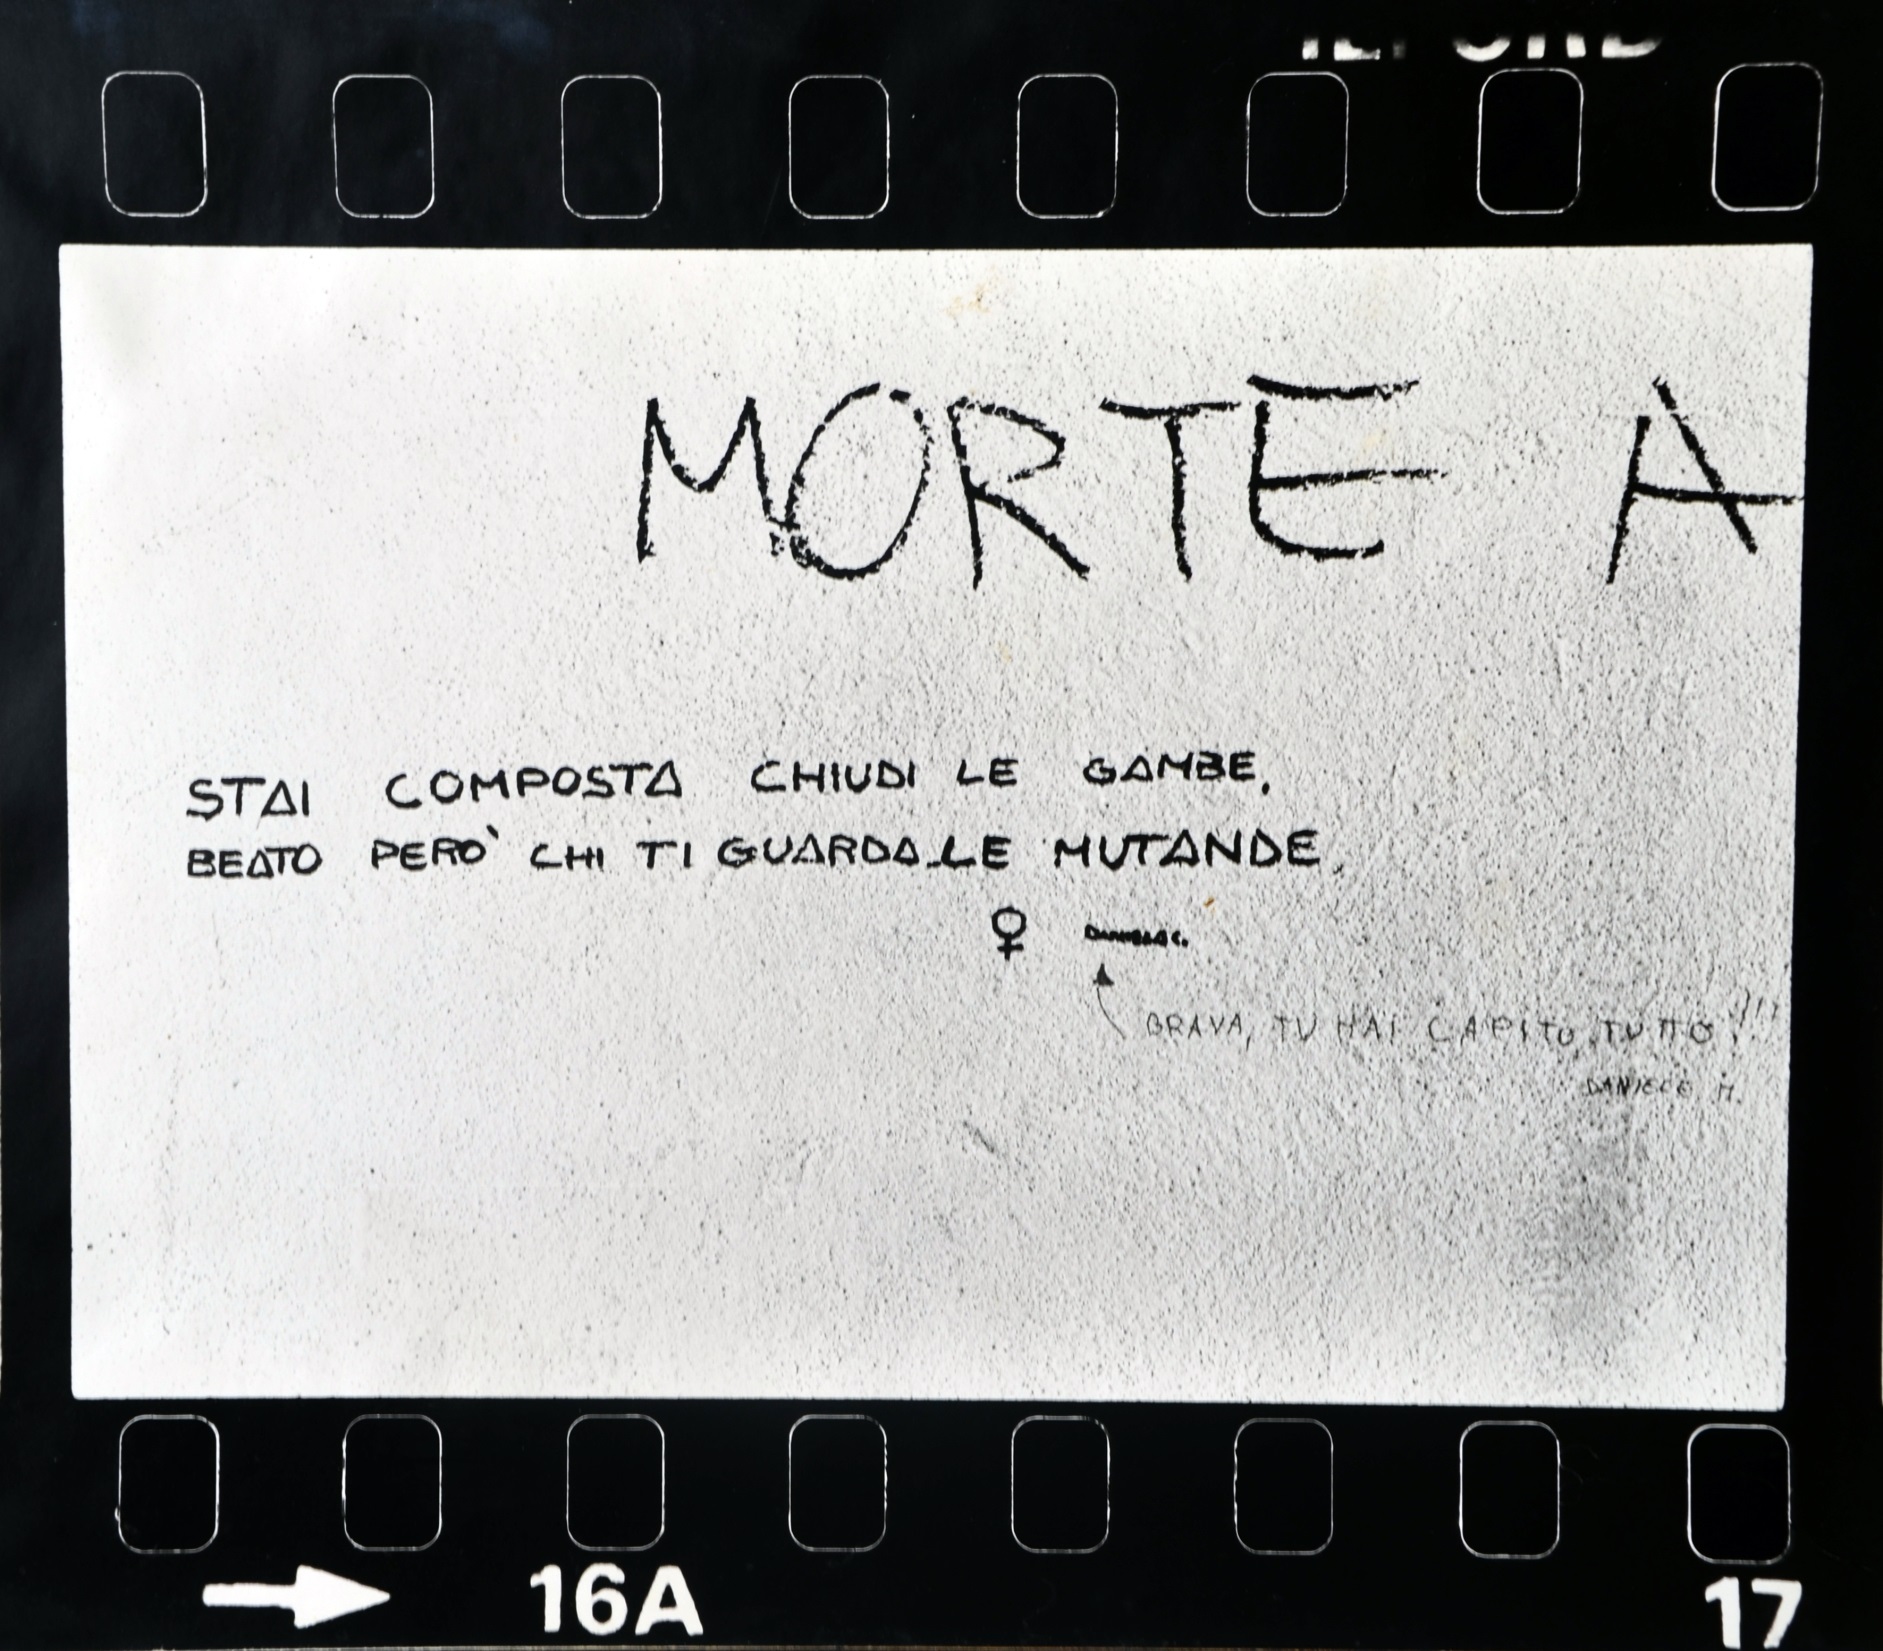 ILFORD
MORTE A
STAI COMPOSTA CHIUDI LE GAMBE.
BEATO PERÒ CHI TI GUARDA LE MUTANDE.
♀
BRAVA, TU HAI CAPITO TUTTO!!!
DANIELE M.
16A 17